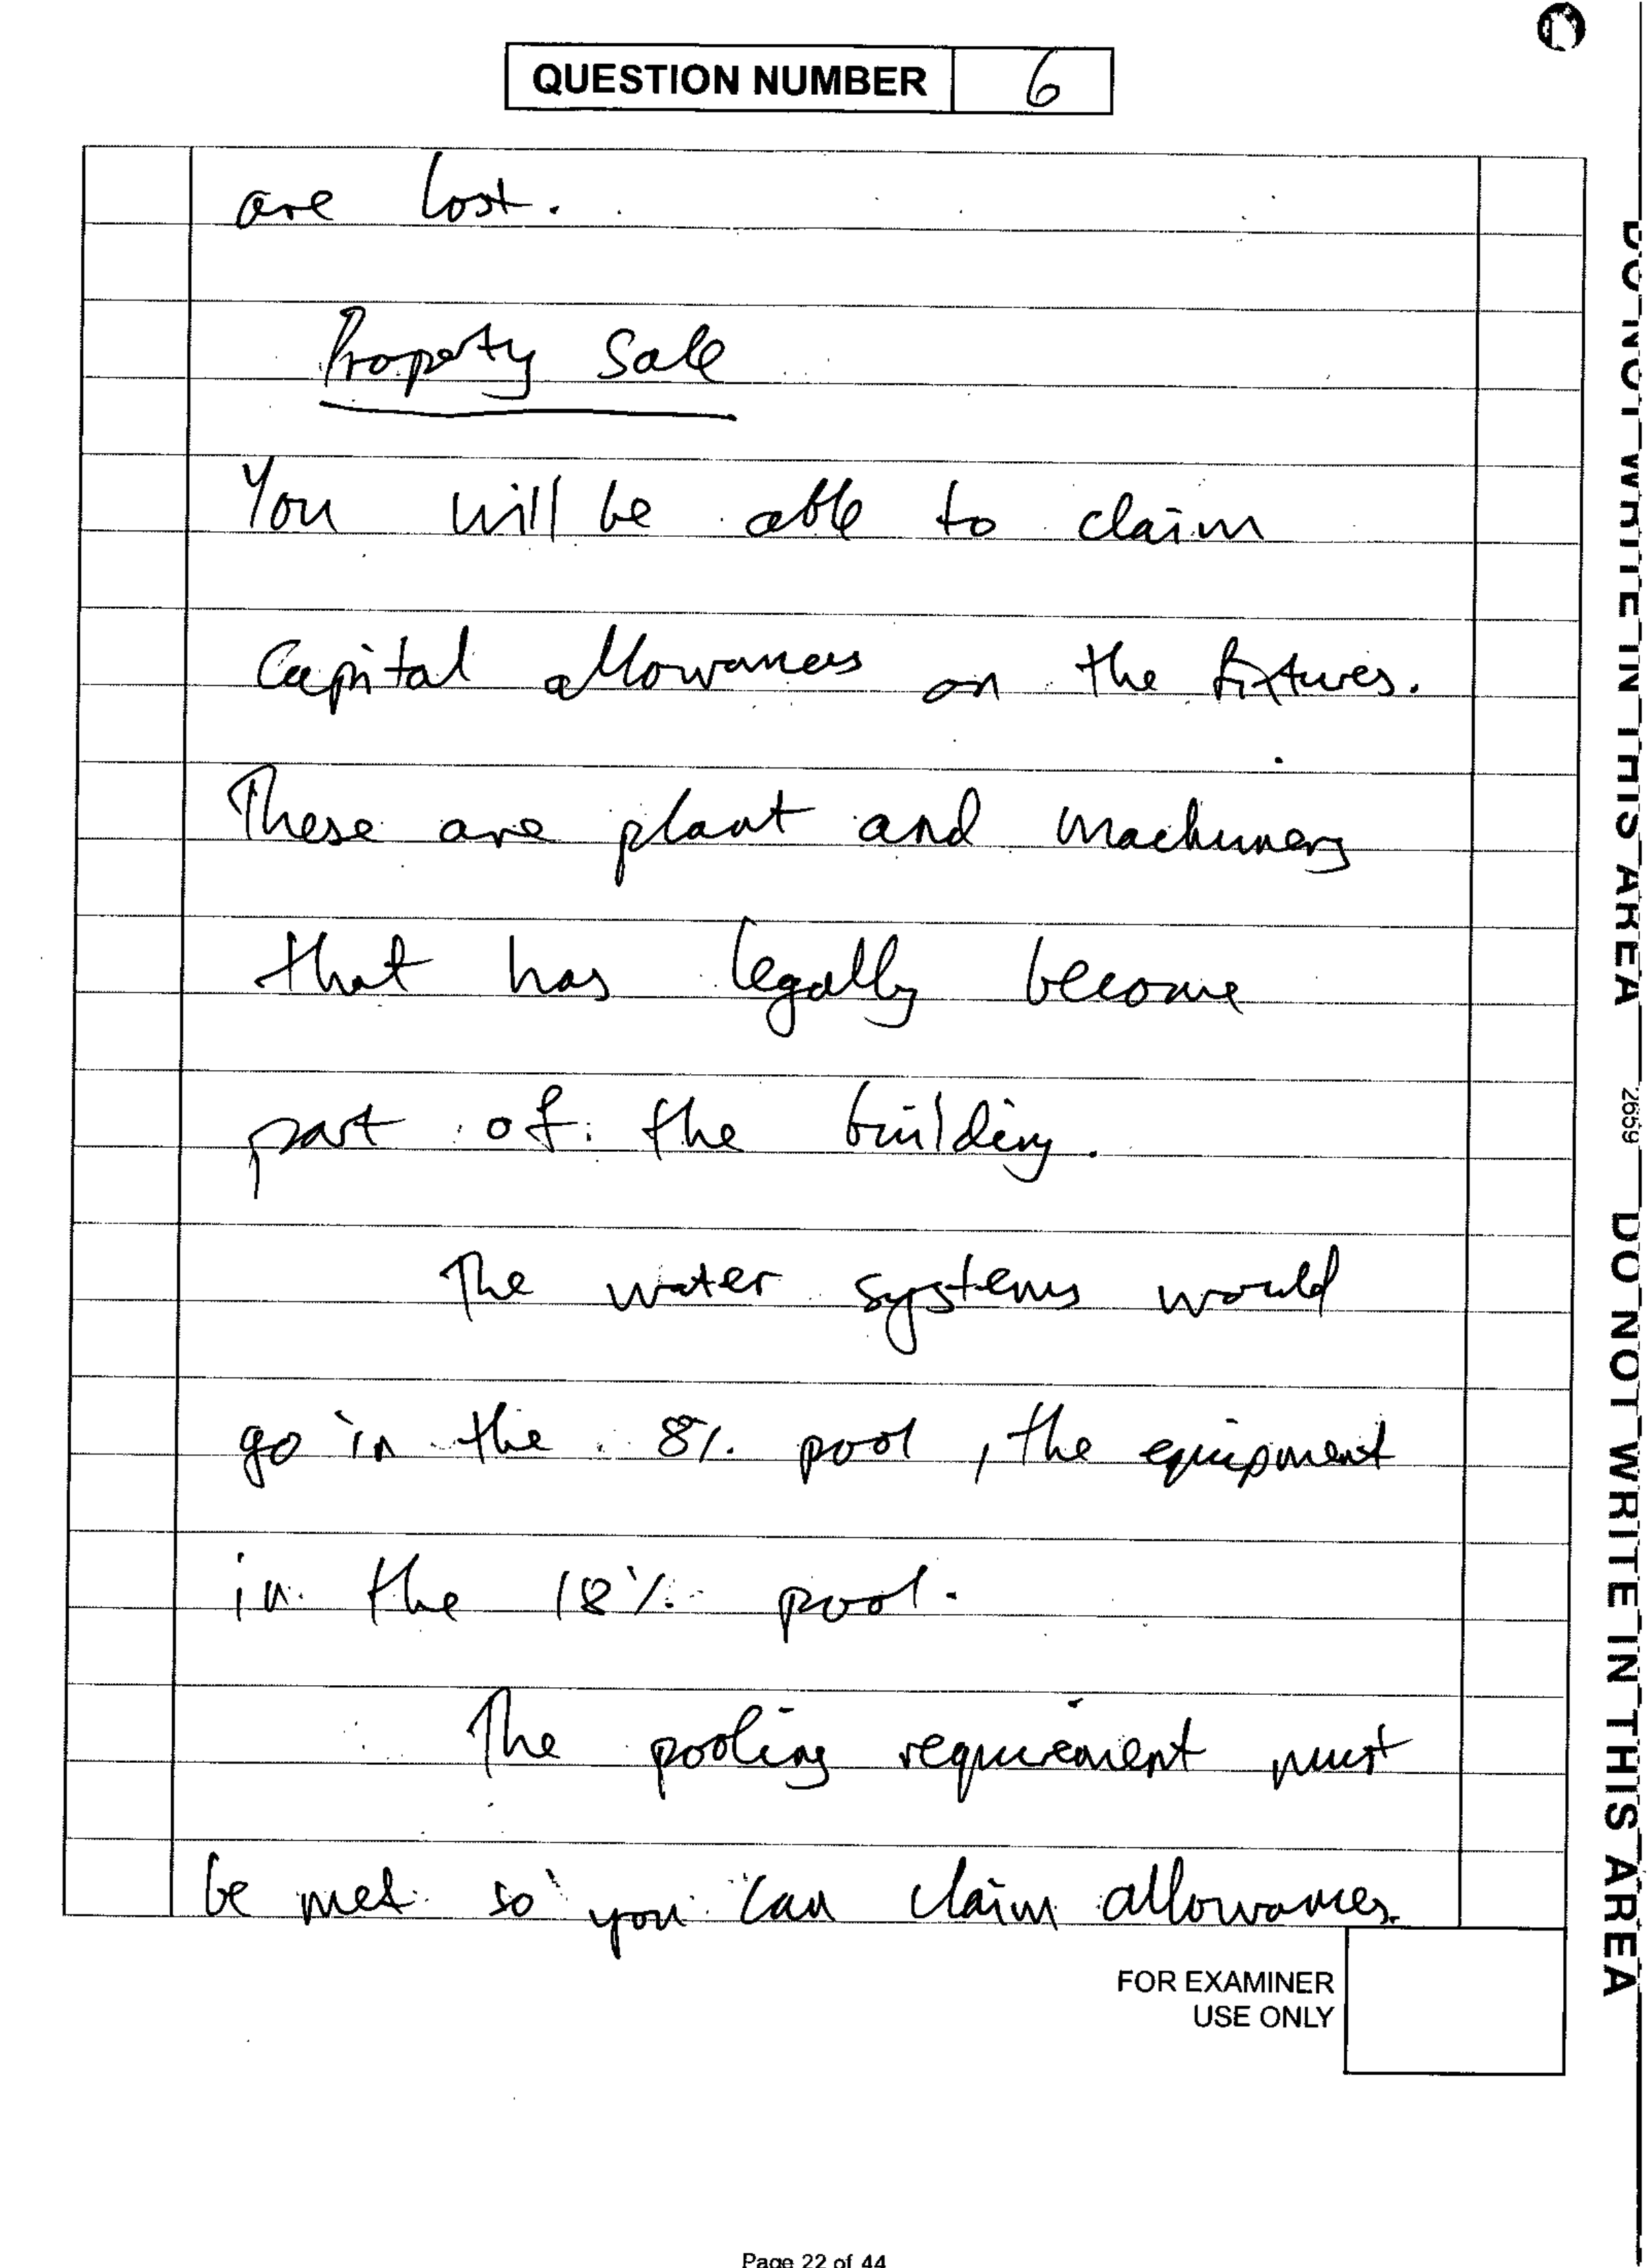 QUESTION NUMBER 6
are lost.
Property Sale
You will be able to claim
Capital allowances on the fixtures.
These are plant and machinery
that has legally become
part of the building.
The water systems would
go in the 8% pool, the equipment
in the 18% pool.
The pooling requirement must
be met so you can claim allowances.
FOR EXAMINER
USE ONLY
Page 22 of 44
DO NOT WRITE IN THIS AREA 2659 DO NOT WRITE IN THIS AREA